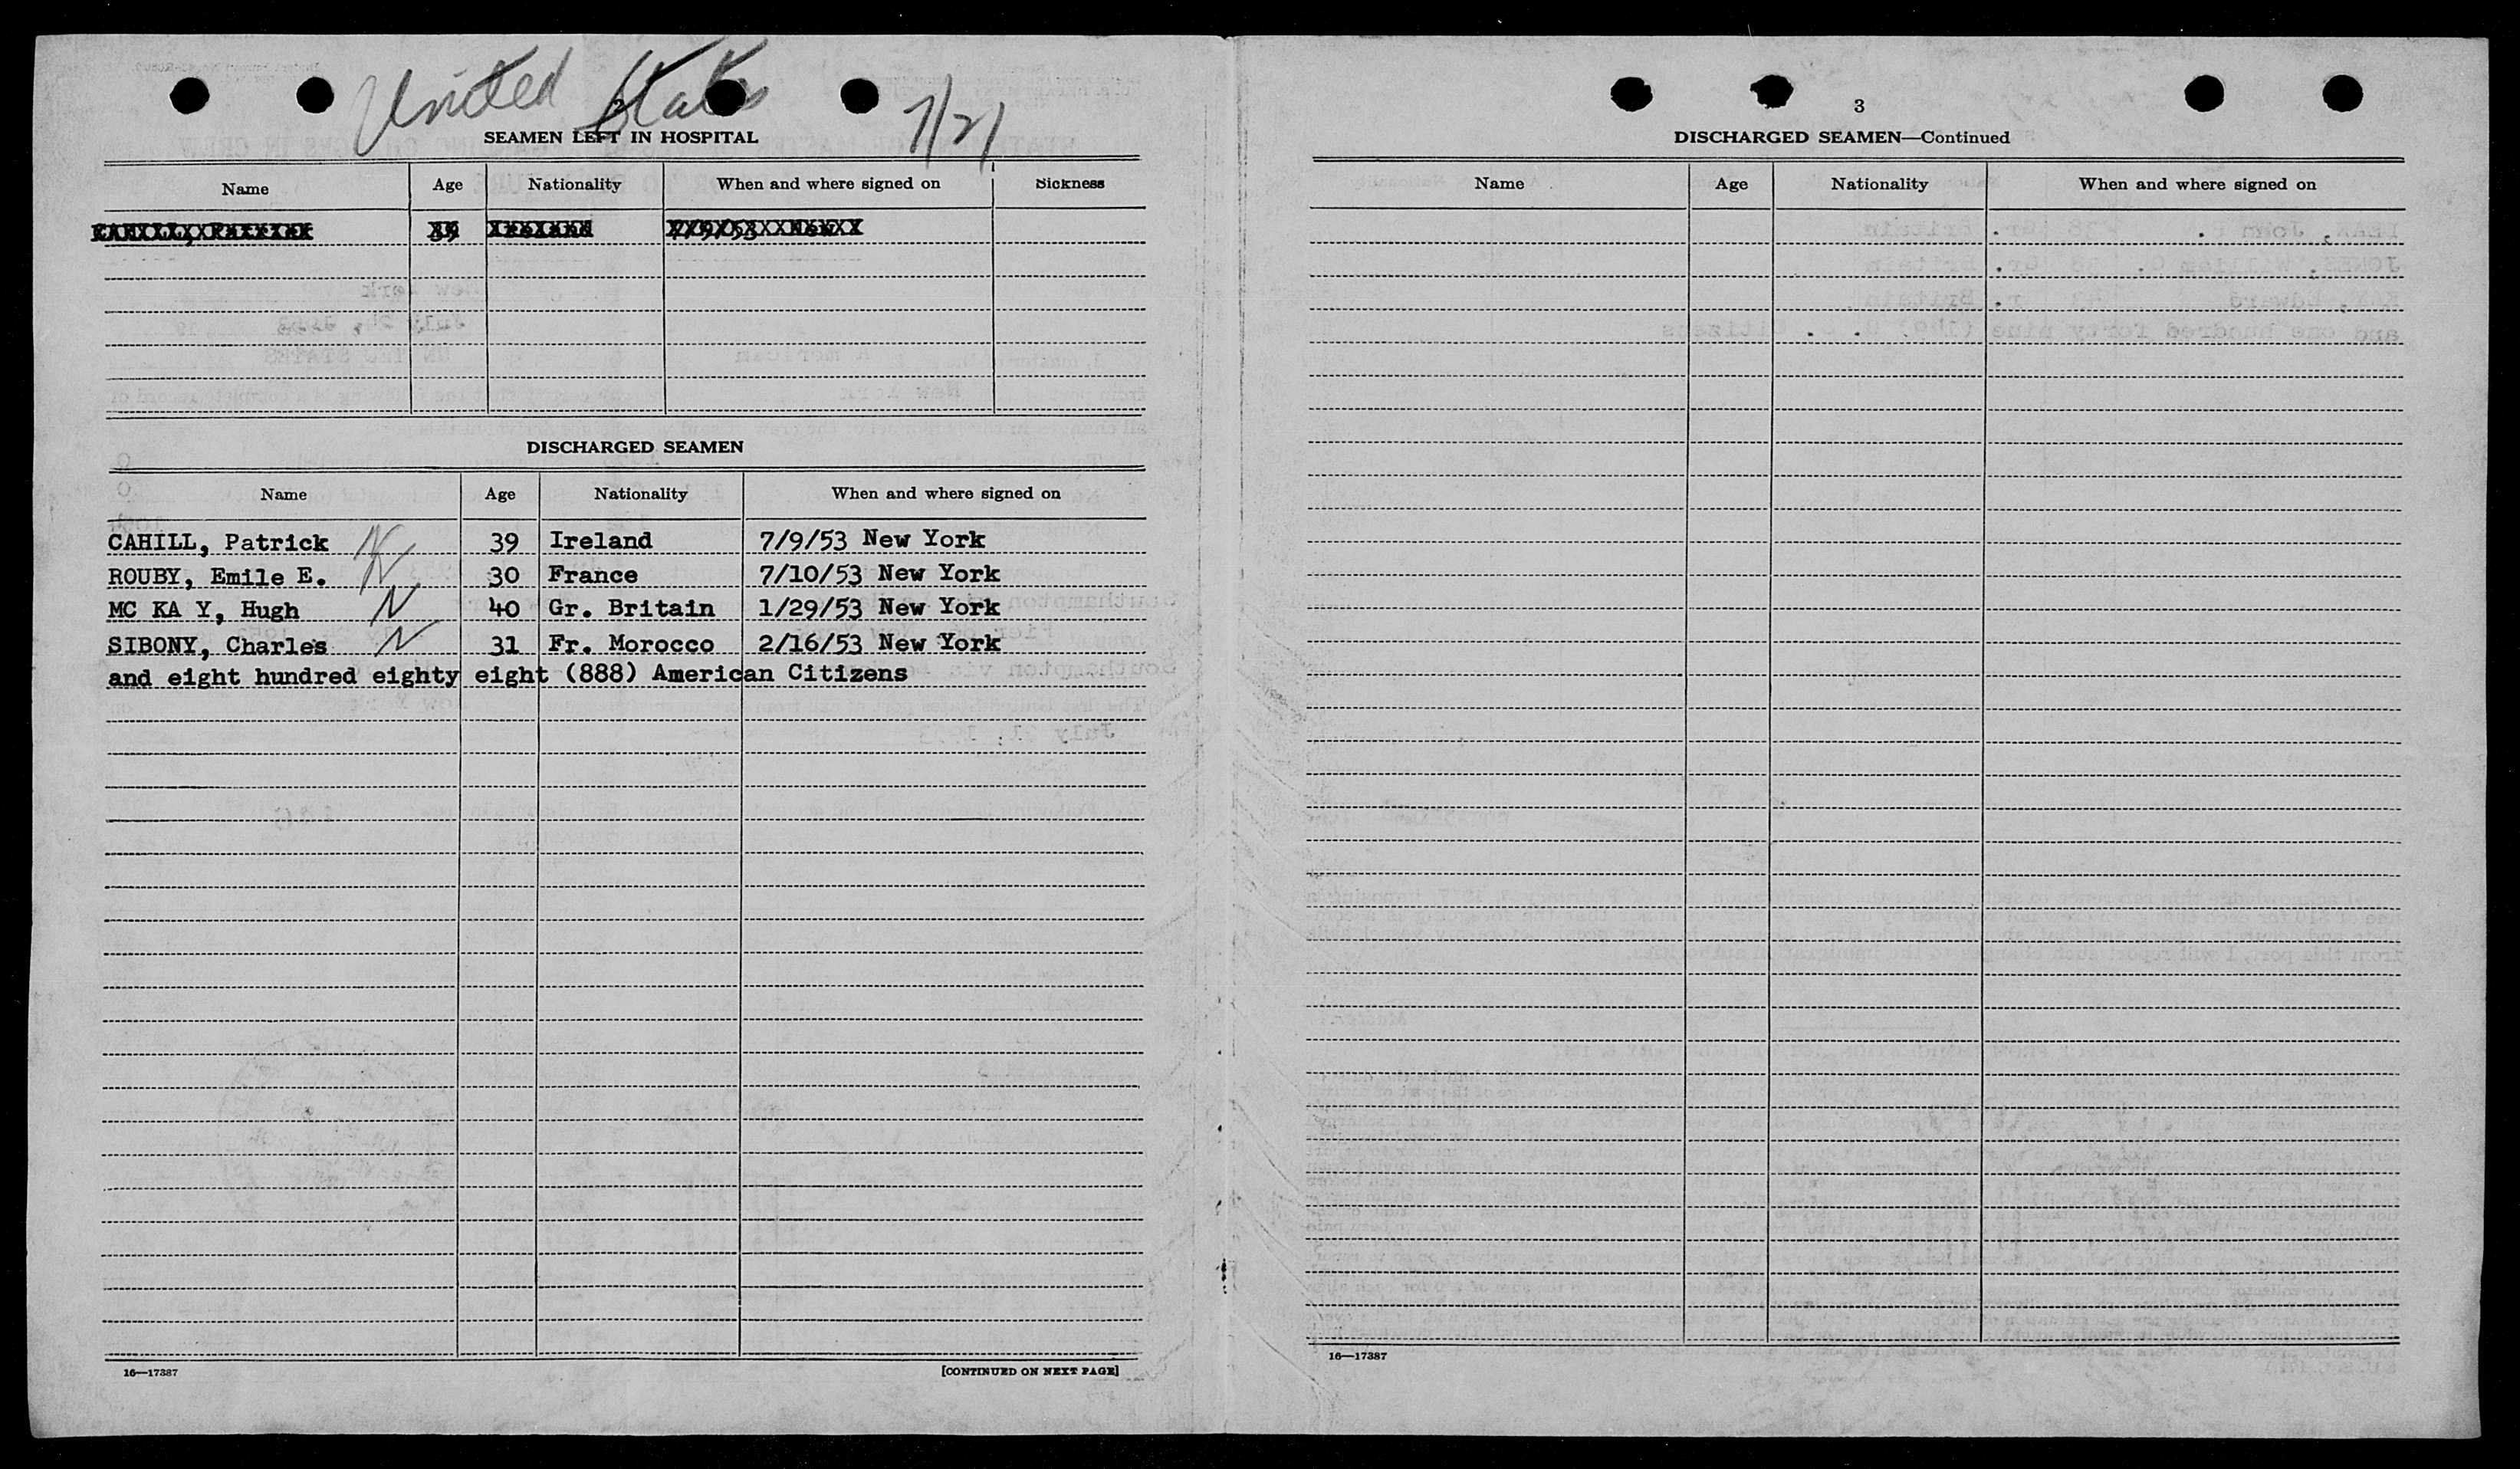 United States 7/21
2
SEAMEN LEFT IN HOSPITAL
Name Age Nationality When and where signed on Sickness
CAHILL, Patrick 39 Ireland 7/9/53 New
DISCHARGED SEAMEN
Name Age Nationality When and where signed on
CAHILL, Patrick 39 Ireland 7/9/53 New York
ROUBY, Emile E. 30 France 7/10/53 New York
MC KA Y, Hugh N 40 Gr. Britain 1/29/53 New York
SIBONY, Charles N 31 Fr. Morocco 2/16/53 New York
and eight hundred eighty eight (888) American Citizens
16—17387 [CONTINUED ON NEXT PAGE]
3
DISCHARGED SEAMEN—Continued
Name Age Nationality When and where signed on
16—17387